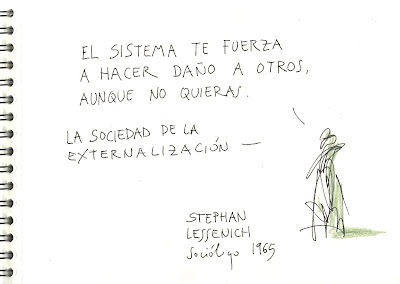 EL SISTEMA TE FUERZA
A HACER DAÑO A OTROS,
AUNQUE NO QUIERAS.
LA SOCIEDAD DE LA
EXTERNALIZACIÓN —
STEPHAN
LESSENICH
Sociólogo 1965